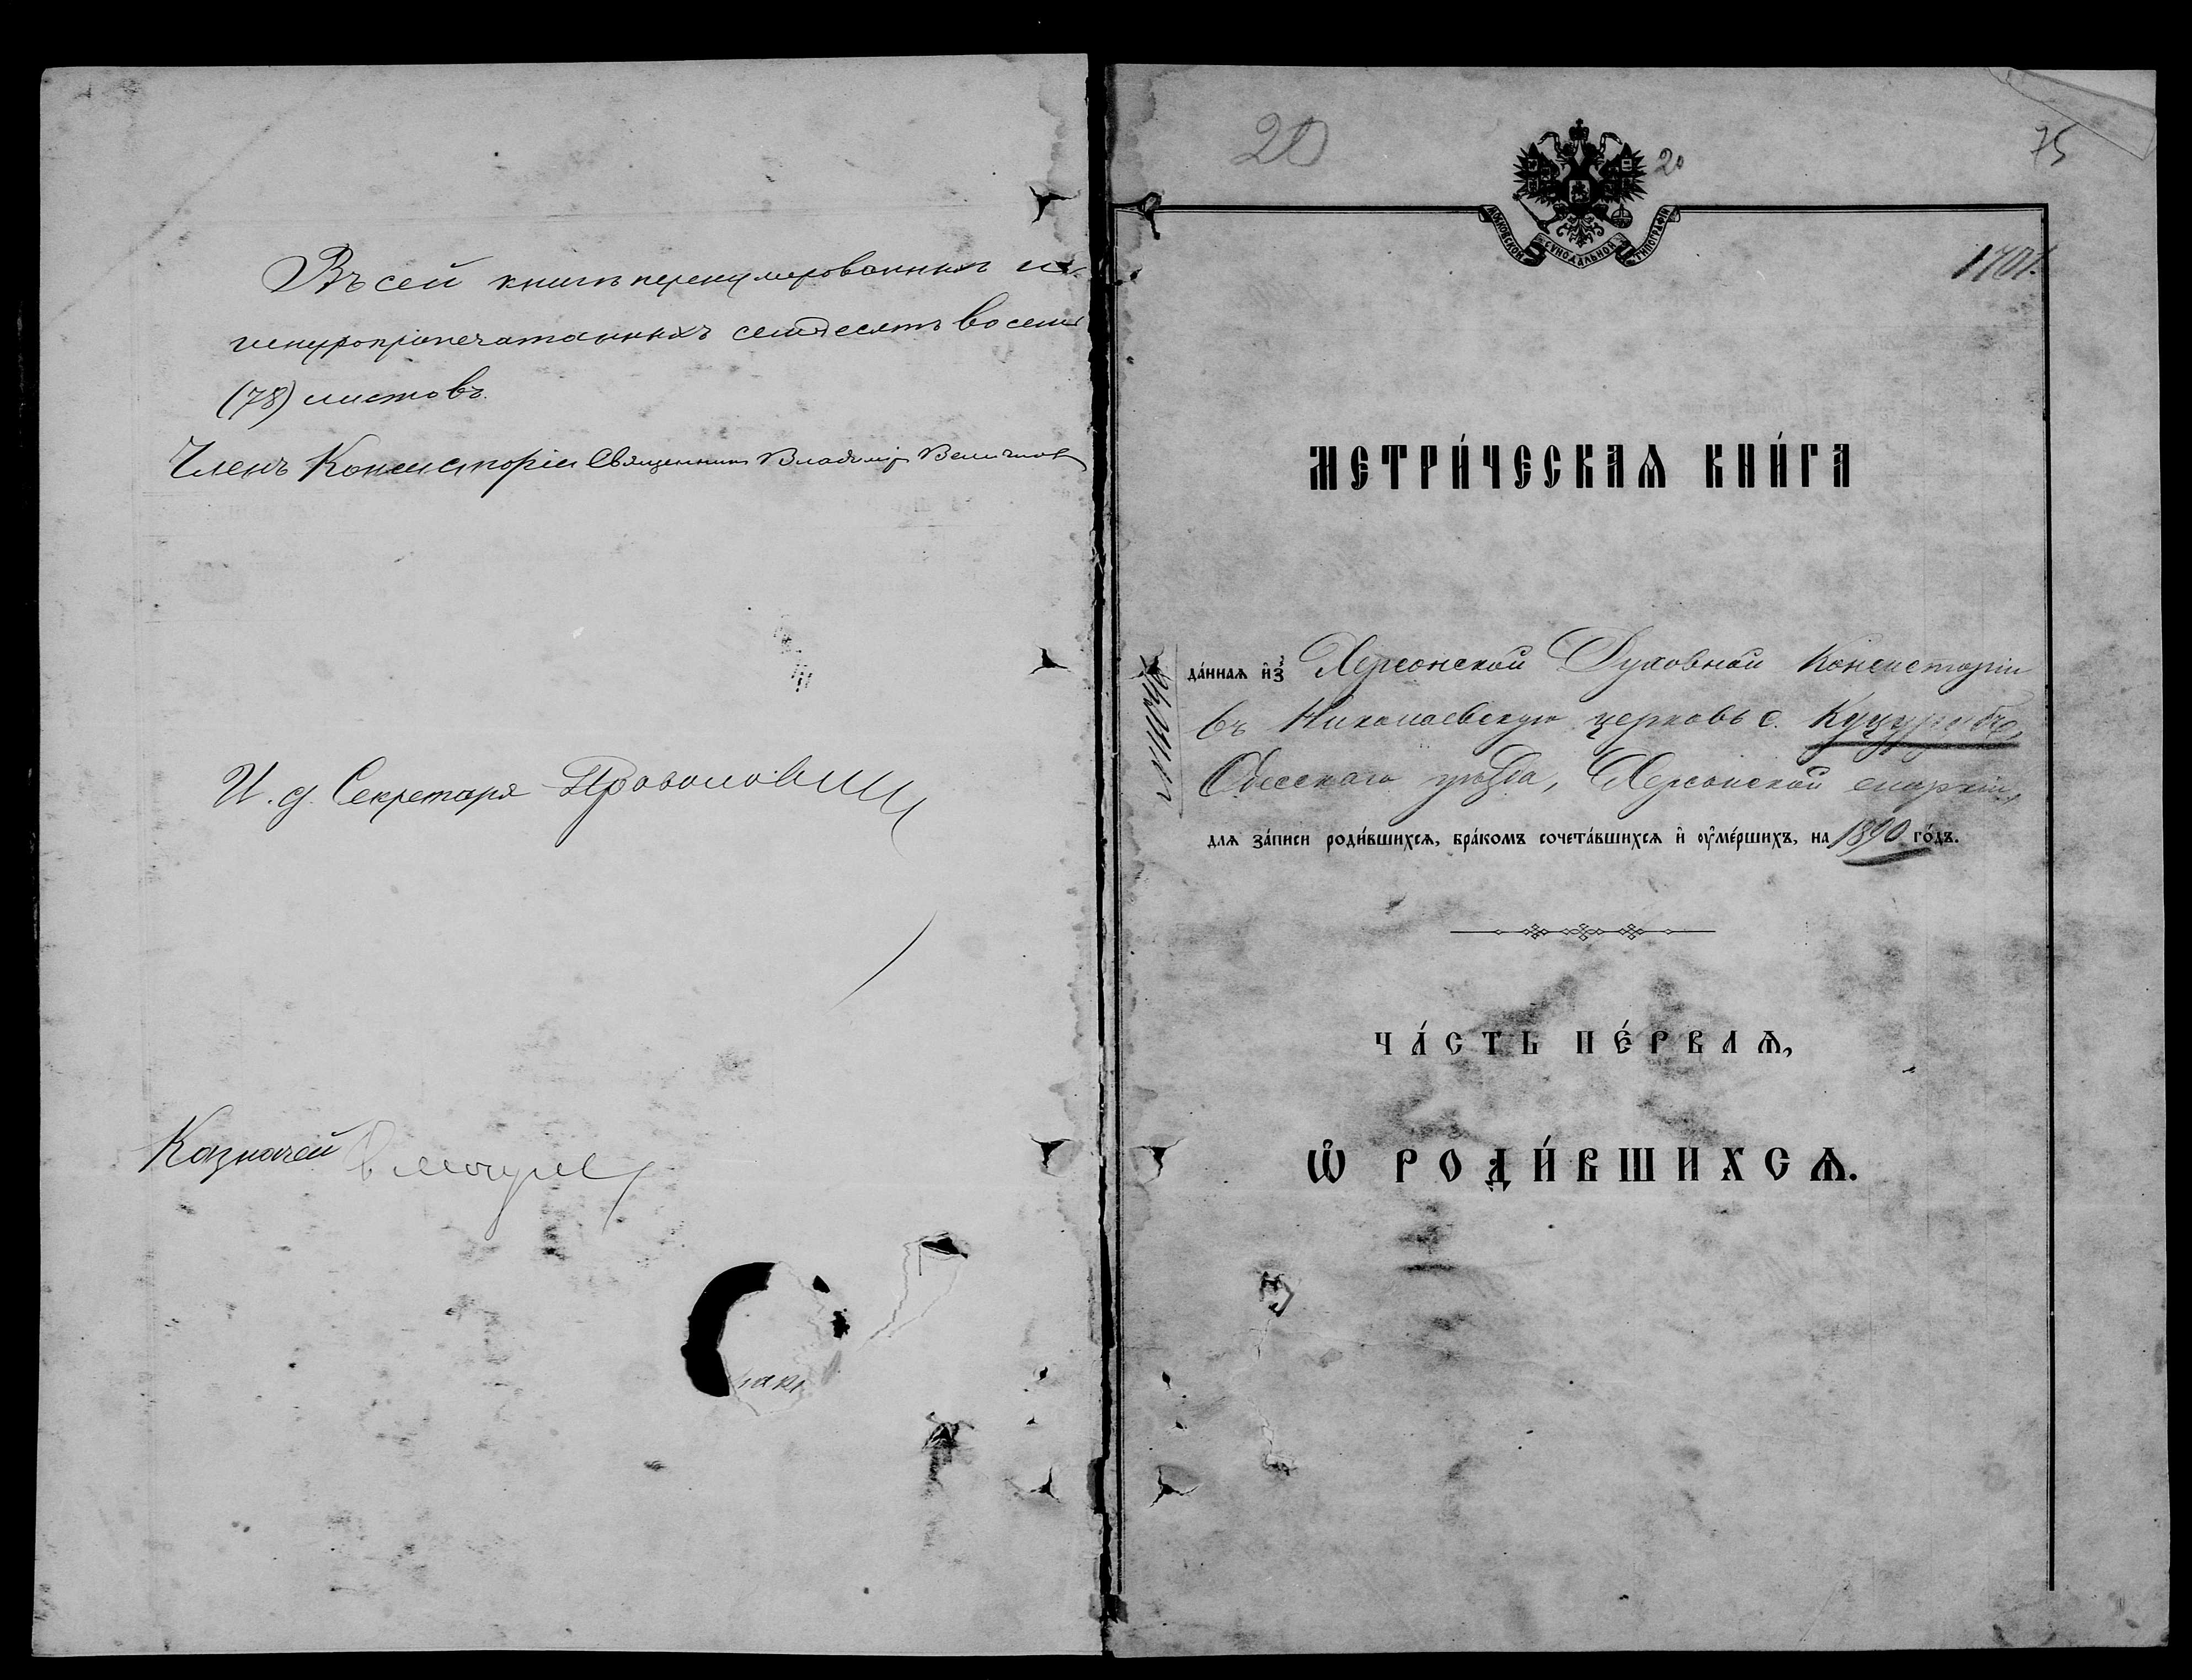 Въ сей книгѣ перенумерованныхъ и
шнуропрпечатанныхъ семдесятъ восемь
(78) листовъ.
Членъ Консисторіи Священникъ Владиміръ
И. д. Секретаря
Казначей
20
20
75
МОСКОВСКОЙ СѴНОДАЛЬНОЙ ТИПОГРАФІИ
1701.
МЕТРИ́ЧЕСКАѦ КНИ́ГА
ДА́ННАѦ И҆З̾ Херсонской Духовной Консисторіи
въ Николаевскую церковь с. Куцурубъ,
Одесскаго уѣзда, Херсонской епархіи,
длѧ за́писи роди́вшихсѧ, бра́комъ сочета́вшихсѧ и҆ ᲂу҆ме́ршихъ, на 1890 го́дъ.
ЧА́СТЬ ПЕ́РВАѦ,
Ѡ҆ РОДИ́ВШИХСѦ.